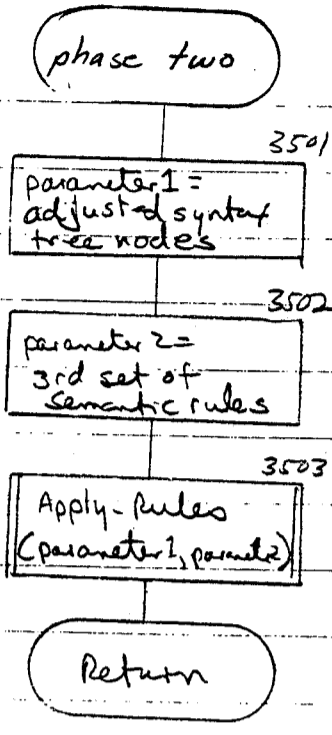 phase two
3501
parameter 1 =
adjusted syntax
tree nodes
3502
parameter 2 =
3rd set of
semantic rules
3503
Apply-Rules
(parameter 1, paramet 2)
Return